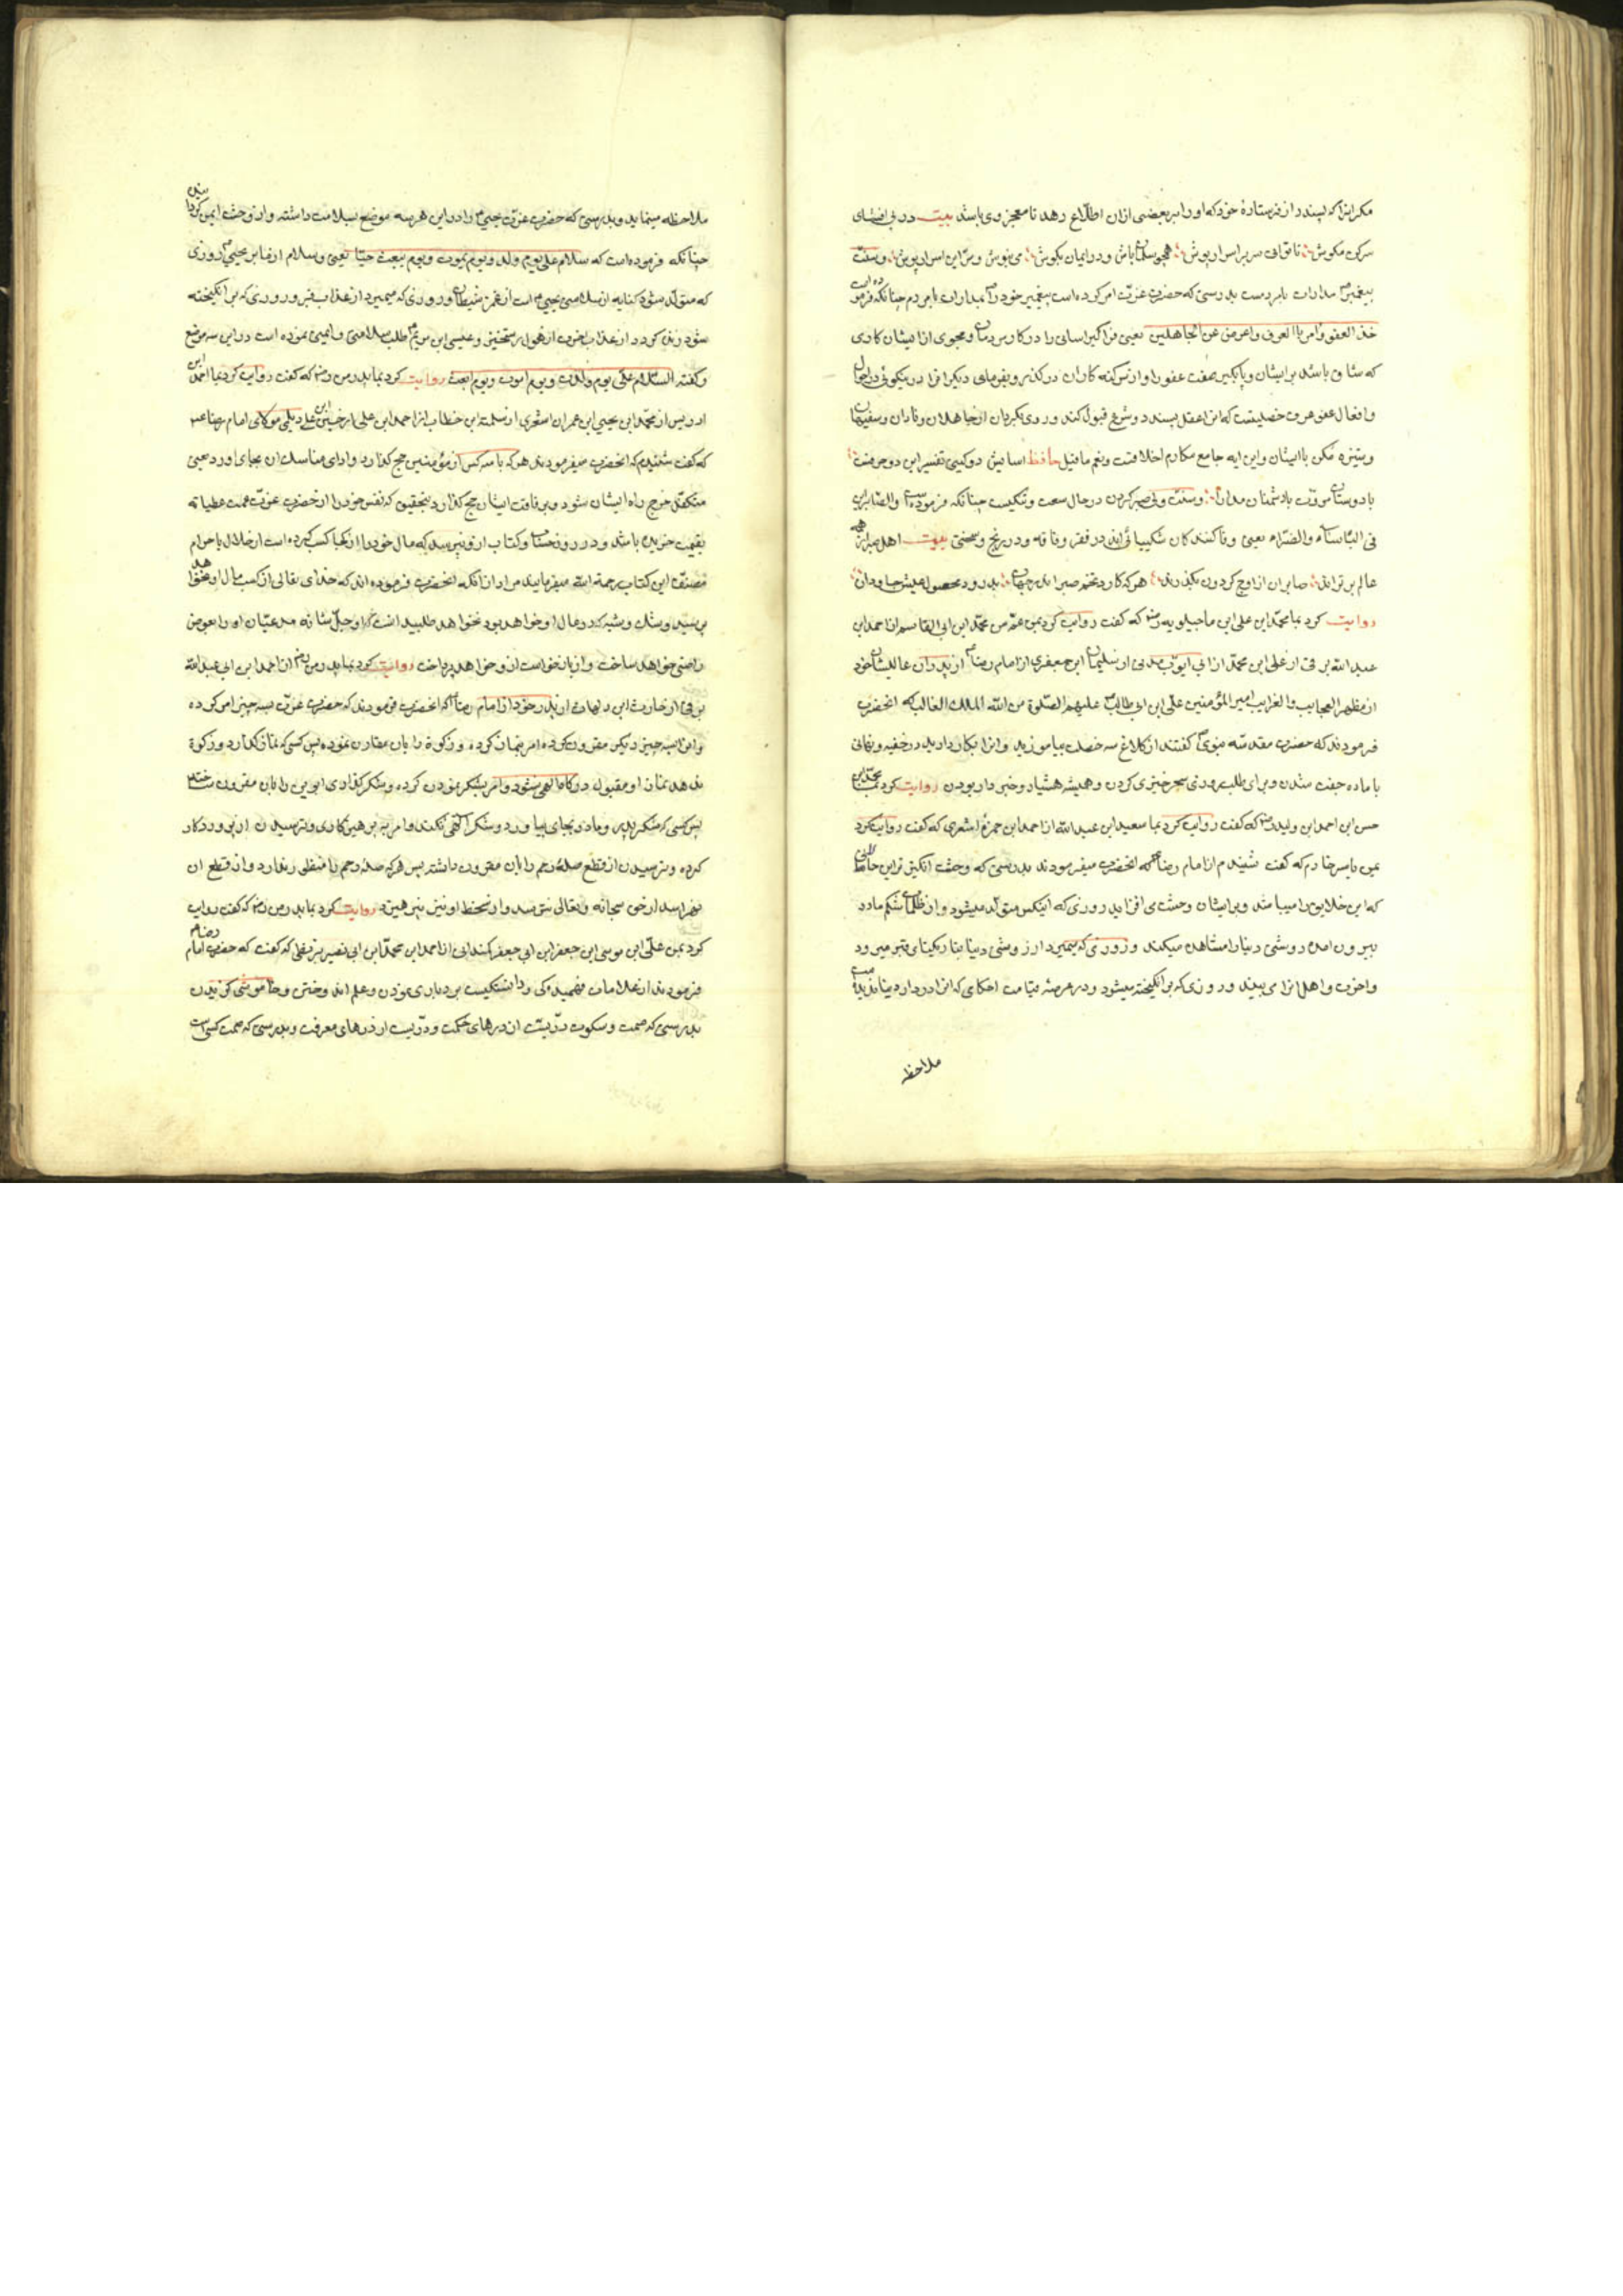 مکر انرا که پسندد از فرستادهٔ خود که او را بر بعضی ازان اطلاع دهد تا معجز وی باشد بیت در پی افشای
سر کس مکوش تا توانی سر بر اسرار پوش همچو سلمان باش و در ایمان بکوش می نیوش و سر این اسرار پوش و سنت
پیغمبر مدارات بامردمست بدرستی که حضرت عزت امر کرده است پیغمبر خود را بمدارات بامردم چنانکه فرموده است
خذ العفو وامر بالعرف واعرض عن الجاهلین یعنی فراگیر اسانی را در کار مردمان و مجوی از ایشان کاری
که شاق باشد بر ایشان و یا بگیر صفت عفو را و از سر گنه کاران درگذر و بفرمای دیگرانرا در نیکوئی در احوال
و افعال عرف خصلیتست که انرا عقل پسندد و شرع قبول کند و روی بگردان از جاهلان و نادان و سفیهان
و ستیزه مکن با ایشان و این ایه جامع مکارم اخلاقست و نعم ماقیل حافظ اسایش دو گیتی تفسیر این دو حرفست
با دوستان مروت با دشمنان مدارا و سنت ولی صبر کردن در حال سخت و تنگیست چنانکه فرموده است والصابرین
فی البأساء والضراء یعنی وفا کنندکان شکیبائی‌اند در فقر و فاقه و در رنج و سختی بیت اهل صبر از همه
عالم برترند صابران از اوج گردون بگذرند هر که کارد تخم صبر اندر جهان بدرود محصول عیش جاودان
روایت کرد بما محمد ابن علی ابن ماجیلویه رض که گفت روایت کرد بمن عم من محمد ابن ابی القاسم از احمد ابن
عبد الله برقی از علی ابن محمد از ابی ایوب مدنی از سلیمان ابن جعفری از امام رضا از پدران عالیشان خود
از مظهر العجایب والغرایب امیر المؤمنین علی ابن ابی طالب علیهم الصلوة من الله الملك الغالب که انحضرت
فرمودند که حضرت مقدسه نبوی گفتند از کلاغ سه خصلت بیاموزید و انرا بکار دارید در خفیه و نهانی
با ماده جفت شدن و برای طلب روزی سحر خیزی کردن و همیشه هشیار و خبردار بودن روایت کرد بما محمد ابن
حسن ابن احمد ابن ولید رض که گفت روایت کرد بما سعید ابن عبد الله از احمد ابن حمزه اشعری که گفت روایت کرد
بمن یاسر خادم که گفت شنیدم از امام رضا که انحضرت میفرمودند بدرستی که وحشت انگیز ترین حالتی
که این خلایق را میباشد و بر ایشان وحشت می افزاید روزی که اینکس متولد میشود و از ظلمات شکم مادر
بیرون امده روشنی دنیا را مشاهده میکند و روزی که بمیرد از روشنی دنیا بتاریکنای قبر میرود
و اخرت و اهل انرا می بیند و روزی که برانگیخته میشود و در عرصه قیامت احکامی که انرا در دار دنیا ندیده است
ملاحظه
ملاحظه مینماید و بدرستی که حضرت عزت یحیی را در این هر سه موضع بسلامت داشته و از وحشت ایمن گردانیده
چنانکه فرموده است که سلام علی یوم ولد ویوم یموت ویوم یبعث حیا یعنی و سلام از ما بر یحیی روزی
که متولد شود کنایه از سلامتی یحیی است از غمز شیطان و روزی که میمیرد از عذاب قبر و روزی که برانگیخته
شود زنده کردد از عذاب اخرت از هول رستخیز و عیسی ابن مریم طلب سلامتی و ایمنی نموده است در این سه موضع
و گفته السلام علی یوم ولدت ویوم اموت ویوم ابعث روایت کرد بما پدر من رض که گفت روایت کرد بما احمد ابن
ادریس از محمد ابن یحیی ابن عمران اشعری از سلمة ابن خطاب از احمد ابن علی از حسین ابن علی دیلمی مولای امام رضا ع
که گفت شنیدم که انحضرت میفرمودند هر که با سه کس از مؤمنین حج گذارد و ادای مناسک ان بجای اورد یعنی
متکفل خرج راه ایشان شود و برفاقت ایشان حج گذارد بتحقیق که نفس خود را از حضرت عزت عمت عطیاته
بقیمت خریده باشد و در روز حساب و کتاب ازو نپرسد که مال خود را از کجا کسب کرده است از حلال یا حرام
مصنف این کتاب رحمة الله میفرماید مراد از انکه انحضرت فرموده اند که خدای تعالی از کسب مال او نخواهد
پرسید و شک و شبه که در مال او خواهد بود نخواهد طلبید انست که او جل شانه مدعیان او را بعوض
راضی خواهد ساخت و از بازخواست ازو خواهد پرداخت روایت کرد بما پدر من رض از احمد ابن ابی عبد الله
برقی از حارث ابن دلهاث از پدر خود از امام رضا که انحضرت فرمودند که حضرت عزت بسه چیز امر کرده
و انرا بسه چیز دیگر مقرون کرده امر بنماز کرده و زکوة را بان مقارن نموده پس کسی که نماز گذارد و زکوة
ندهد نماز او مقبول درگاه الهی نشود و امر بشکر نمودن کرده و شکر گذاری ابوین را بان مقرون ساخته
پس کسی که شکر پدر و مادر بجای نیاورد و شکر الهی نکند و امر به پرهیزکاری و ترسیدن از پروردکار
کرده و ترسیدن از قطع صلهٔ رحم را بان مقرون داشته پس هر که صلهٔ رحم را منظور ندارد و از قطع ان
نهراسد از حق سبحانه و تعالی نترسد و از سخط او نیز نپرهیزد روایت کرد بما پدر من رض که گفت روایت
کرد بمن علی ابن موسی ابن جعفر ابن ابی جعفر کمندانی از احمد ابن محمد ابن ابی نصیر بزنطی که گفت که حضرت امام رضا
فرمودند از علامات فهمیدگی و دانستگیست بردباری نمودن و علم اندوختن و خاموشی گزیدن
بدرستی که صمت و سکوت دریست از درهای حکمت و دریست از درهای معرفت و بدرستی که صمت کسی است